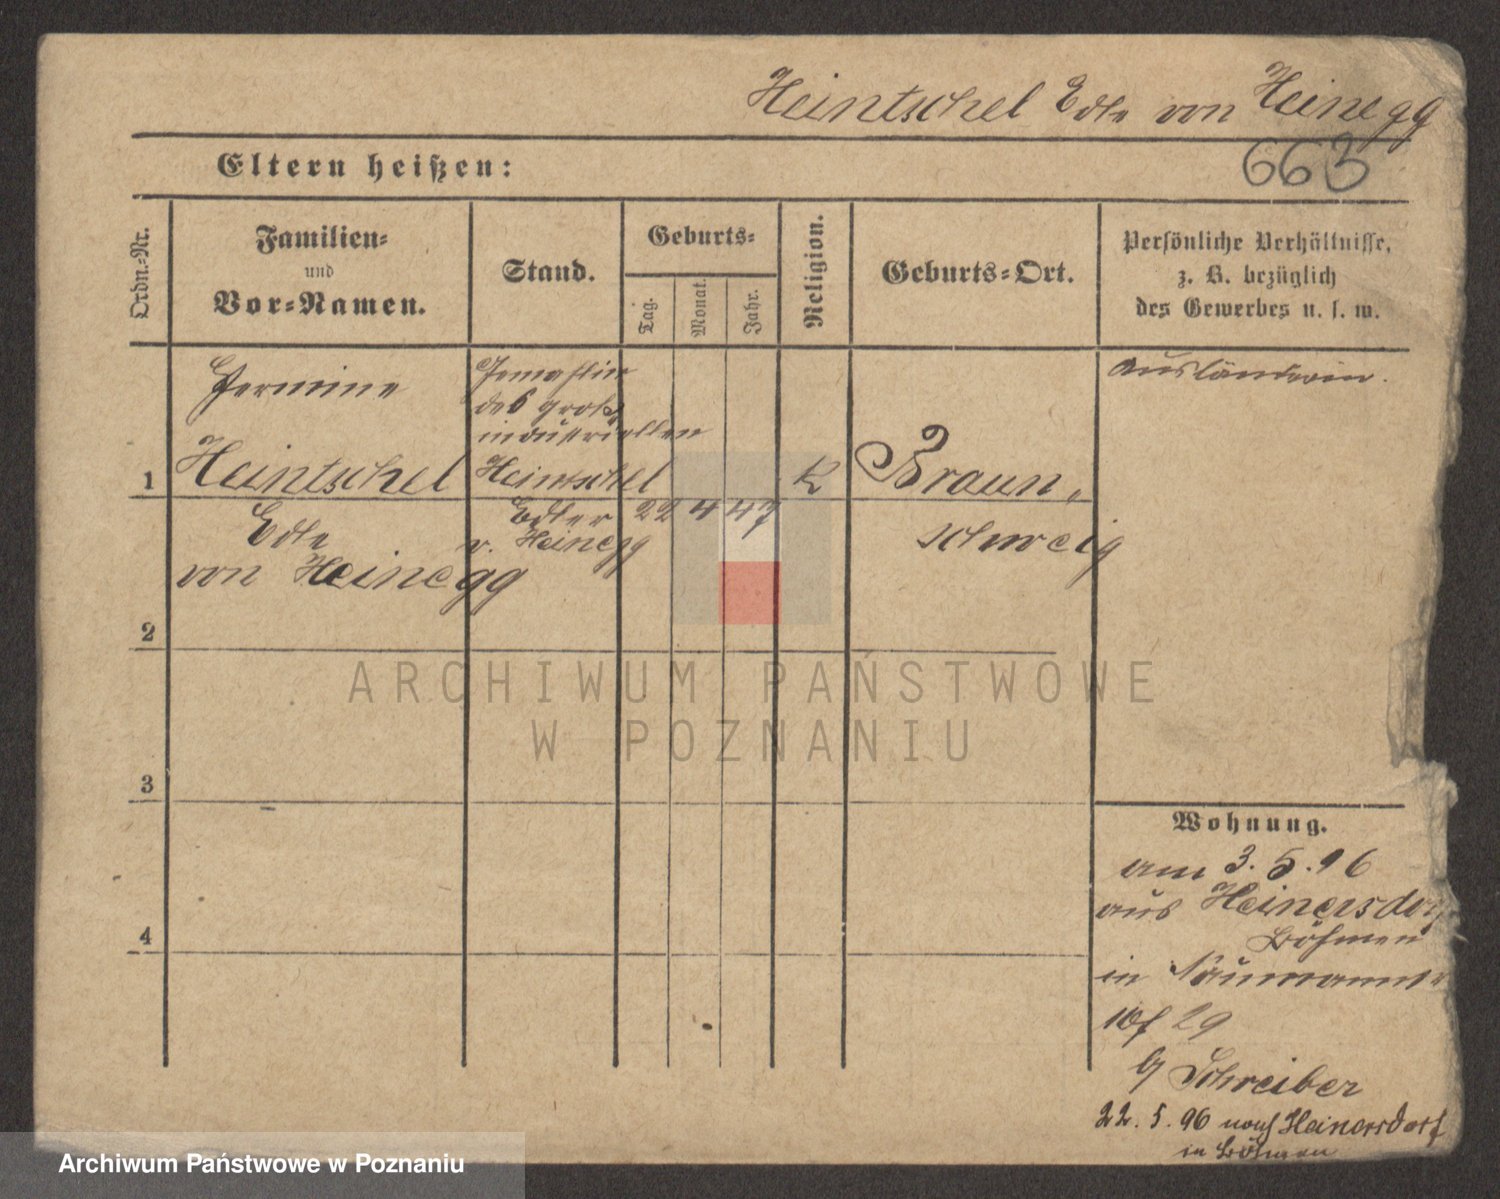 Heintschel Edle von Heinegg
663
Eltern heißen:
Ordn.=Nr.
Familien=
und
Vor=Namen.
Stand.
Geburts=
Tag.
Monat.
Jahr.
Religion.
Geburts=Ort.
Persönliche Verhältnisse,
z. B. bezüglich
des Gewerbes u. s. w.
1
Hermine
Heintschel
Edle
von Heinegg
Gemahlin
des groß
industriellen
Heintschel
Edler
v. Heinegg
22 4 47
K
Braun
schweig
Ausländerin.
2
3
4
Wohnung.
am 3.5.96
aus Heinersdorf
Böhmen
in Naumannstr
29
b/ Schreiber
22.5.96 nach Heinersdorf
in Böhmen
ARCHIWUM PAŃSTWOWE
W POZNANIU
Archiwum Państwowe w Poznaniu